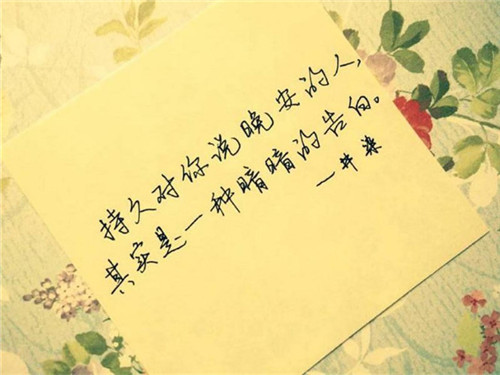 持久对你说晚安的人，
其实是一种暗暗的告白。
一井染